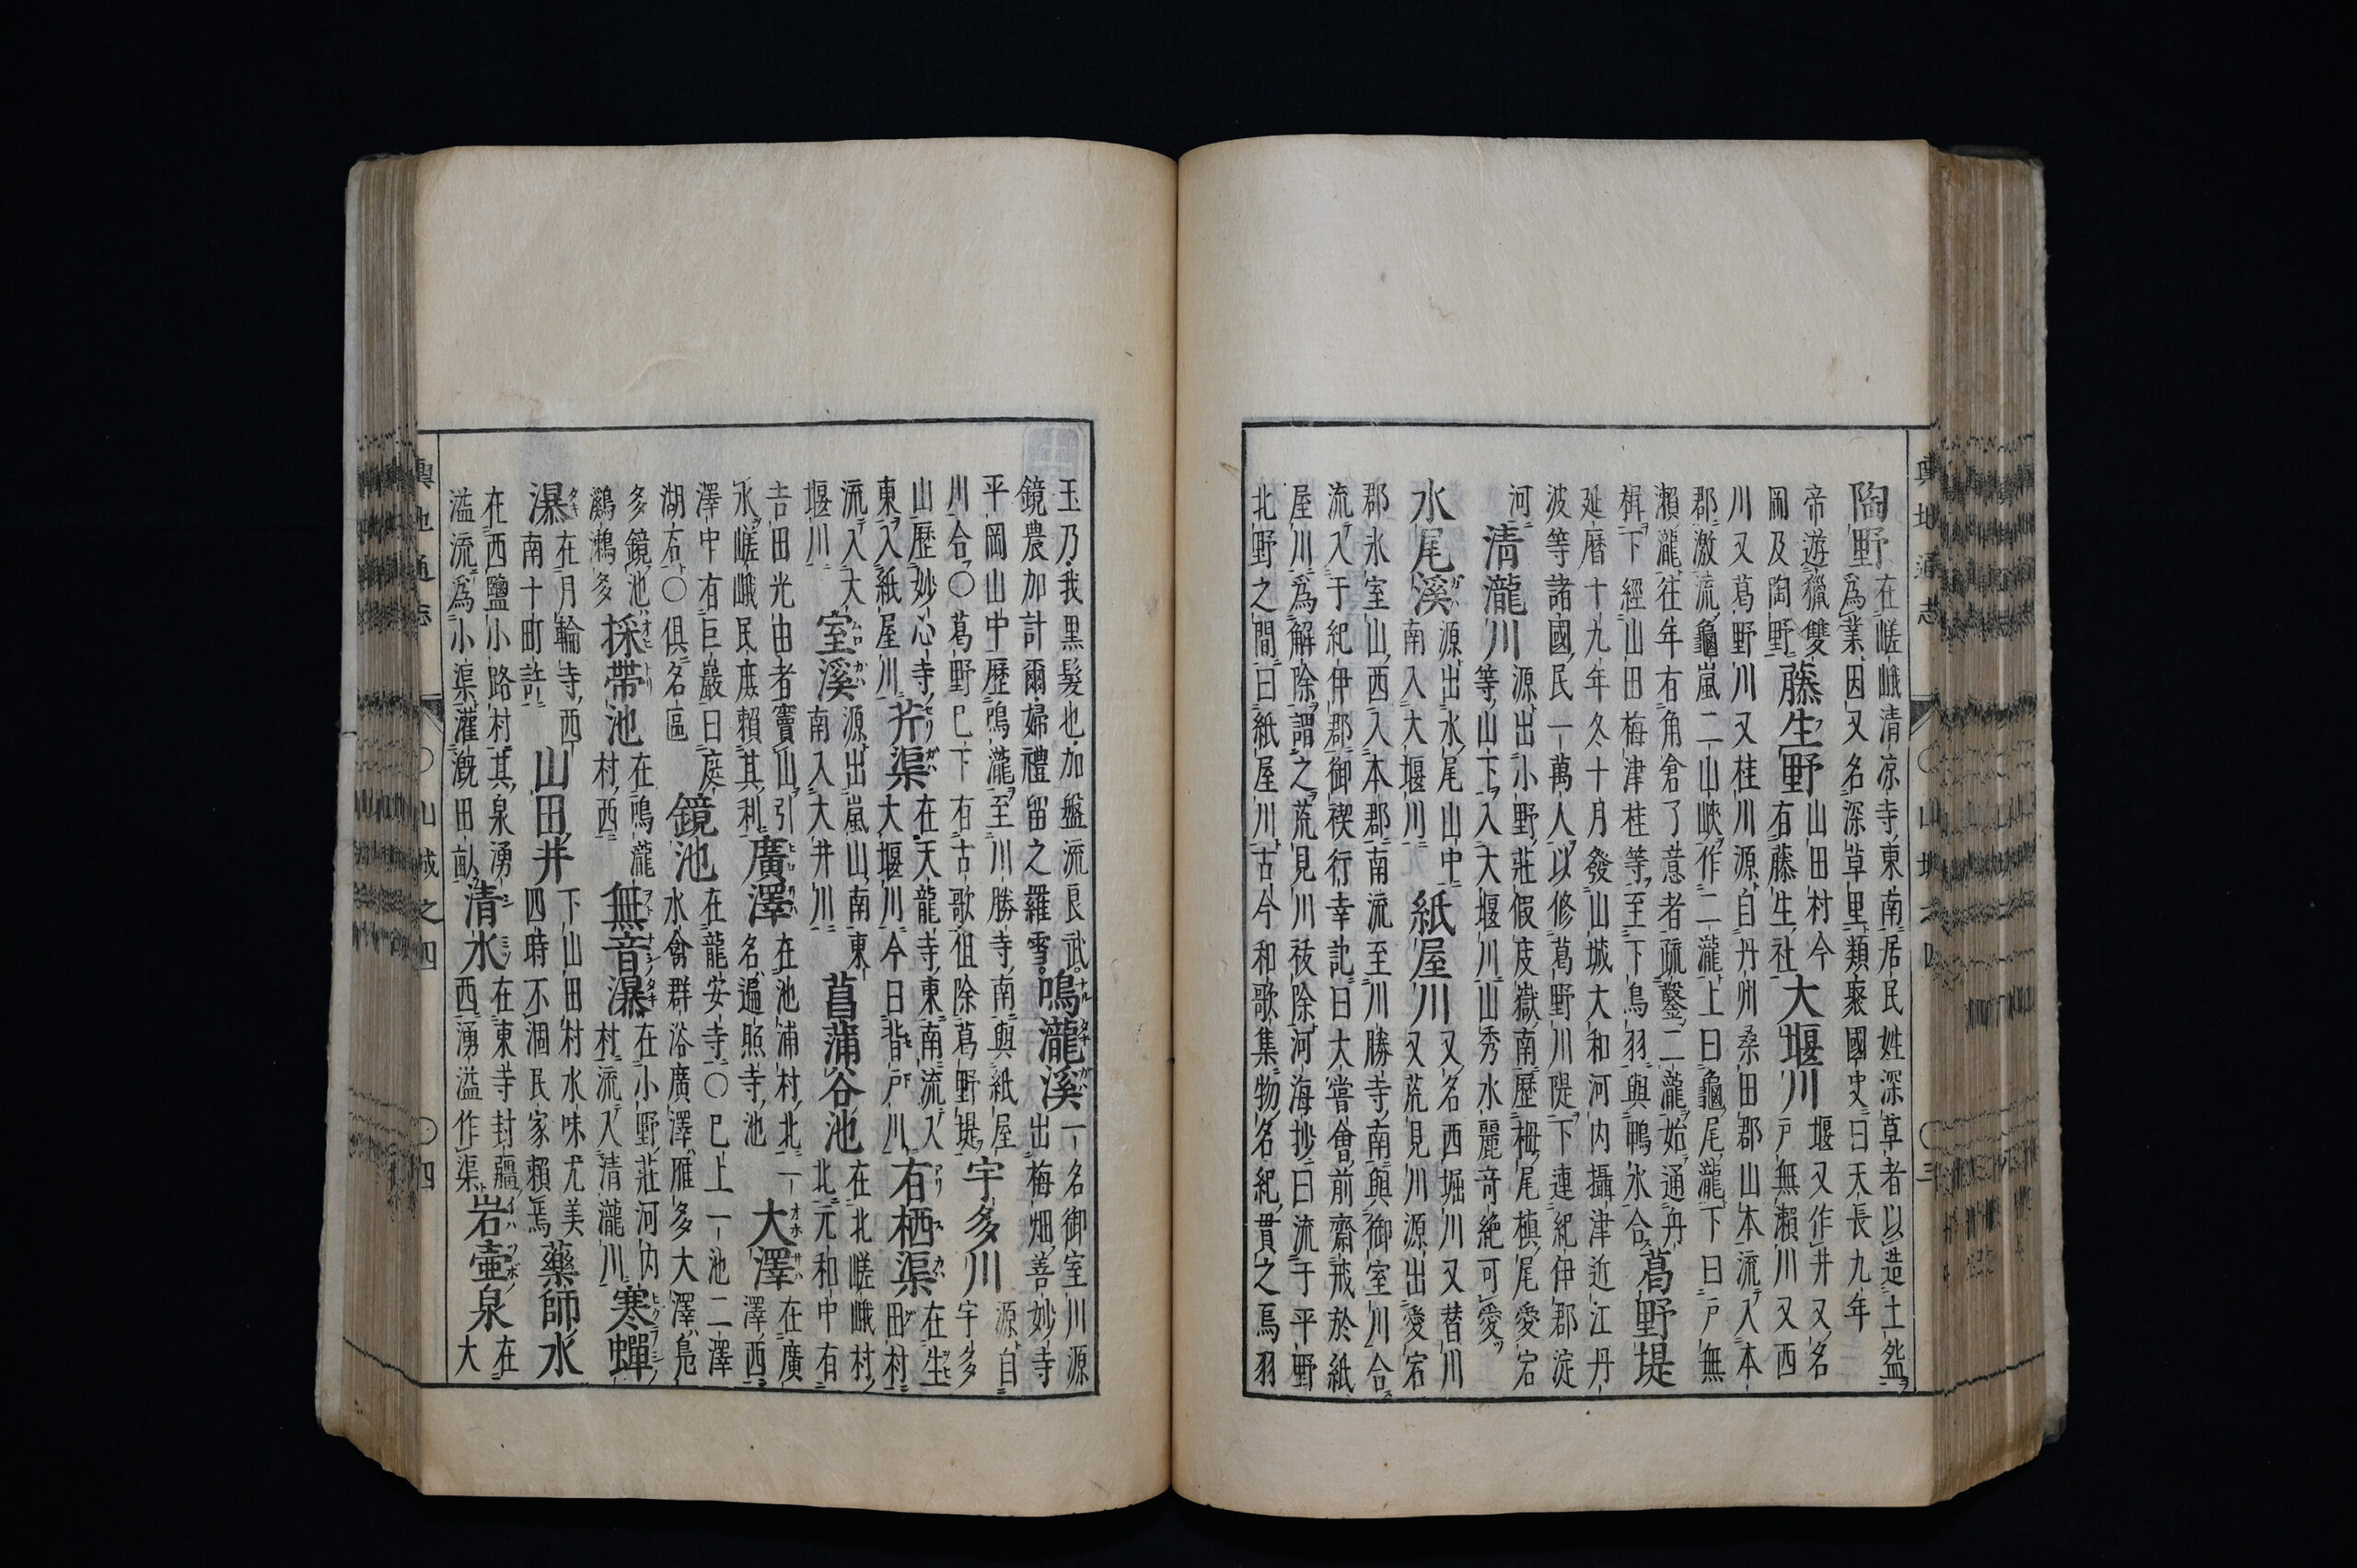 陶野
在嵯峨清凉寺東南居民姓深草者以造土盌
爲業因又名深草里類聚國史曰天長九年
帝遊獵雙
岡及陶野
藤生野
山田村今
有藤生社
大堰川
堰又作井又名
戸無瀨川又西
川又葛野川又桂川源自丹州桑田郡山本流入本
郡激流龜嵐二山峽作二瀧上曰龜尾瀧下曰戸無
瀨瀧往年有角倉了意者疏鑿二瀧始通丹
楫下經山田梅津桂等至下鳥羽與鴨水合
葛野堤
延暦十九年冬十月發山城大和河内攝津近江丹
波等諸國民一萬人以修葛野川隄下連紀伊郡淀
河
清瀧川
源出小野莊假度嶽南歷栂尾槙尾愛宕
等山下入大堰川山秀水麗竒絶可愛
水尾溪
源出水尾山中
南入大堰川
紙屋川
又名西堀川又替川
又荒見川源出愛宕
郡氷室山西入本郡南流至川勝寺南與御室川合
流入于紀伊郡御禊行幸記曰大嘗會前齋戒於紙
屋川爲解除謂之荒見川祓除河海抄曰流于平野
北野之間曰紙屋川古今和歌集物名紀貫之烏羽
輿地通志 〇山城之四 〇三
玉乃我黒髮也加盤流良武
鏡農加計爾婦禮留之羅雪
鳴瀧溪
一名御室川源
出梅畑善妙寺
平岡山中歷鳴瀧至川勝寺南與紙屋
川合〇葛野已下有古歌徂除葛野堤
宇多川
源自
宇多
山歷妙心寺
東入紙屋川
芥渠
在天龍寺東南流入
大堰川今日背戸川
有栖渠
在生
田村
流入大
堰川
室溪
源出嵐山南東
南入大井川
菖蒲谷池
在北嵯峨村
北元和中有
吉田光由者竇山引
水嵯峨民庶賴其利
廣澤
在池浦村北一
名遍照寺池
大澤
在廣
澤西
澤中有巨巖曰庭
湖石〇倶名區
鏡池
在龍安寺〇已上一池二澤
水禽群浴廣澤雁多大澤鳧
多鏡池
鸂鶒多
採帶池
在鳴瀧
村西
無音瀑
在小野莊河内
村流入清瀧川
寒蟬
瀑
在月輪寺西
南十町許
山田井
下山田村水味尤美
四時不涸民家賴焉
藥師水
在西鹽小路村其泉湧
溢流爲小渠灌漑田畝
清水
在東寺封疆
西湧溢作渠
岩壷泉
在
大
輿地通志 〇山城之四 〇四